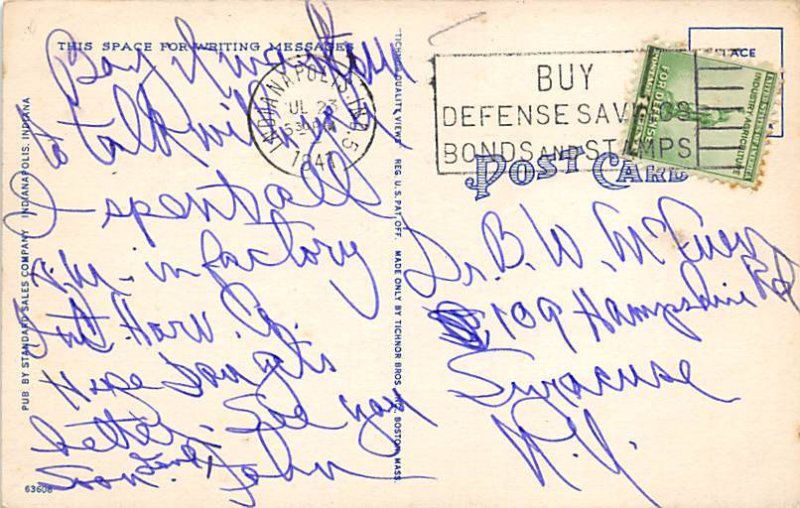 THIS SPACE FOR WRITING MESSAGES
Boy I
to talk with
I spent all
A.M. in factory
Int. Harv. Co.
Hope Doug gets
better. See you
soon. Love, John
63608
PUB BY STANDARD SALES COMPANY INDIANAPOLIS, INDIANA
TICHNOR QUALITY VIEWS REG. U.S. PAT. OFF. MADE ONLY BY TICHNOR BROS. INC. BOSTON, MASS.
INDIANAPOLIS, IND. 5
JUL 23
1941
BUY
DEFENSE SAVINGS
BONDS AND STAMPS
PLACE
UNITED STATES OF AMERICA
INDUSTRY AGRICULTURE
FOR DEFENSE
POST CARD
Dr. B. W. McEuen
109 Hampshire Rd
Syracuse
N.Y.